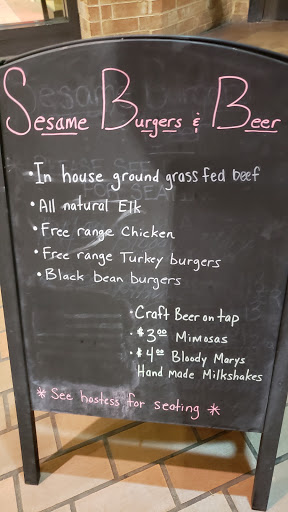 Sesame Burgers & Beer
• In house ground grass fed beef
• All natural Elk
• Free range Chicken
• Free range Turkey burgers
• Black bean burgers
• Craft Beer on tap
• $3.00 Mimosas
• $4.00 Bloody Marys
Hand made Milkshakes
* See hostess for seating *